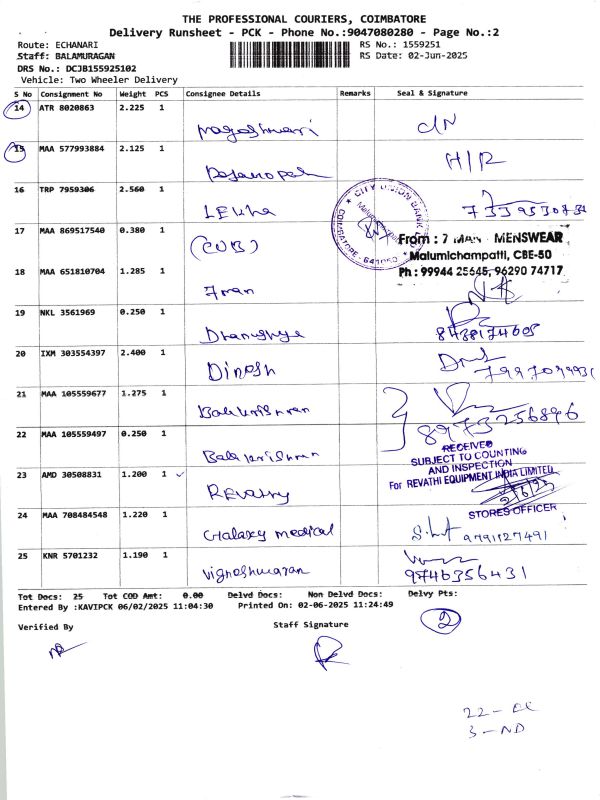 THE PROFESSIONAL COURIERS, COIMBATORE
Delivery Runsheet - PCK - Phone No.:9047080280 - Page No.:2
Route: ECHANARI RS No.: 1559251
Staff: BALAMURAGAN RS Date: 02-Jun-2025
DRS No.: DCJB155925102
Vehicle: Two Wheeler Delivery
S No Consignment No Weight PCS Consignee Details Remarks Seal & Signature
14 ATR 8020863 2.225 1 nageshwari
15 MAA 577993884 2.125 1 H/R
16 TRP 7959306 2.560 1 Lekha 7339530734
CITY UNION BANK
COIMBATORE - 641050
17 MAA 869517540 0.380 1 (CUB)
From : 7 MAN MENSWEAR
Malumichampatti, CBE-50
Ph : 99944 25645, 96290 74717
18 MAA 651810704 1.285 1 7man
19 NKL 3561969 0.250 1 8438174605
20 IXM 303554397 2.400 1 Dinesh
21 MAA 105559677 1.275 1 Balakrishnan 8973256896
22 MAA 105559497 0.250 1 Balakrishnan
RECEIVED
SUBJECT TO COUNTING
AND INSPECTION
For REVATHI EQUIPMENT INDIA LIMITED
23 AMD 30508831 1.200 1 ✓ Revathy
STORES OFFICER
24 MAA 708484548 1.220 1 Galaxy medical 9791127491
25 KNR 5701232 1.190 1 Vigneshwaran 9746356431
Tot Docs: 25 Tot COD Amt: 0.00 Delvd Docs: Non Delvd Docs: Delvy Pts:
Entered By :KAVIPCK 06/02/2025 11:04:30 Printed On: 02-06-2025 11:24:49
2
Verified By Staff Signature
22 - DL
3 - ND